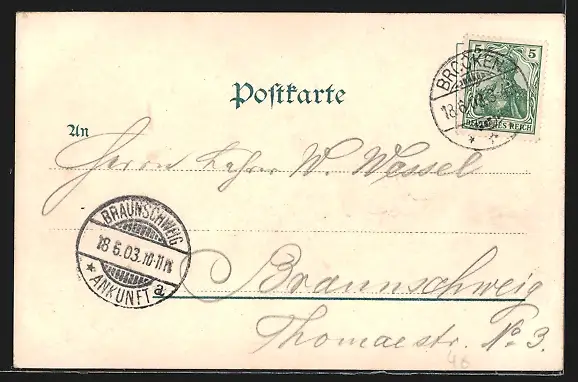 5 5
BROCKEN
18.6.
DEUTSCHES REICH
Postkarte
An
Herrn Lehrer W. Wessel
BRAUNSCHWEIG
18.6.03.10-11N
* ANKUNFT a
Braunschweig
Thomaestr. No. 3.
46